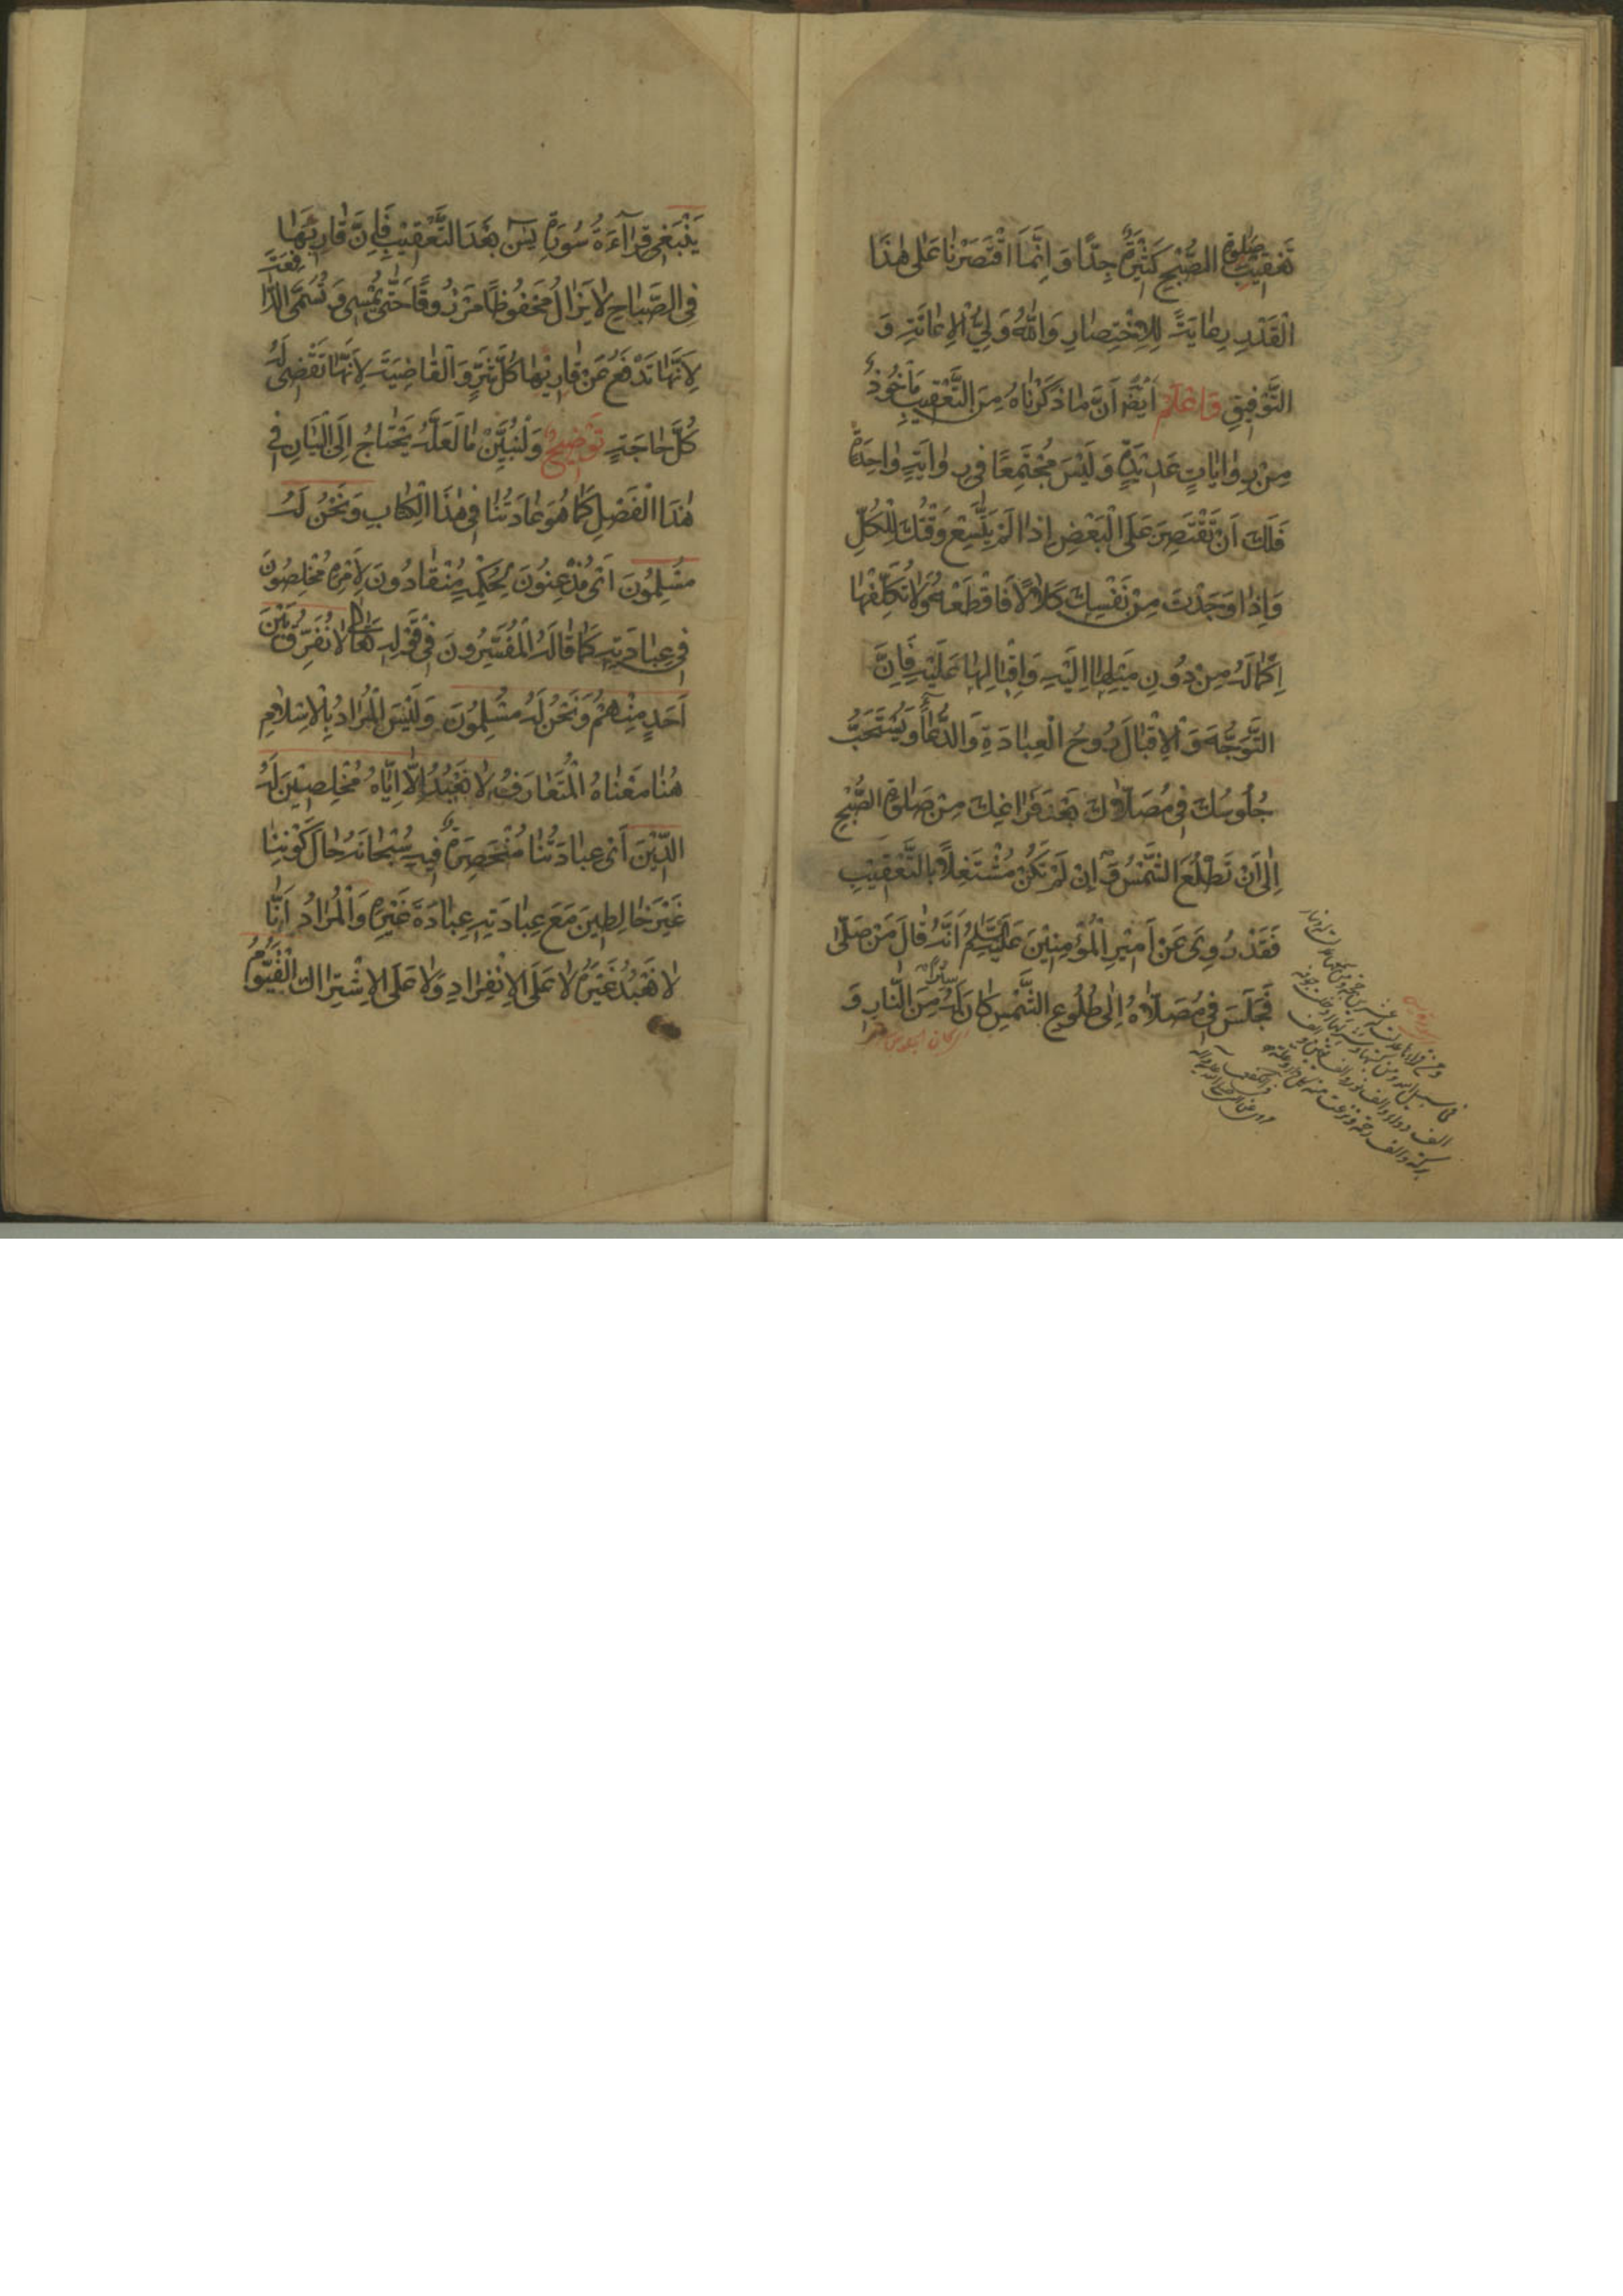 تَعْقِيْبِ صَلٰوةِ الصُّبْحِ كَثِيْرَةٌ جِدًّا وَ اِنَّمَا اقْتَصَرْنٰا عَلٰى هٰذَا
الْقَدْرِ رِعٰايَةً لِلْاِخْتِصٰارِ وَاللّٰهُ وَلِيُّ الْاِعٰانَةِ وَ
التَّوْفِيْقِ وَاعْلَمْ اَيْضًا اَنَّ مٰا ذَكَرْنٰاهُ مِنَ التَّعْقِيْبِ مَأْخُوْذٌ
مِنْ رِوٰايٰاتٍ عَدِيْدَةٍ وَ لَيْسَ مُجْتَمِعًا فِى رِوٰايَةٍ وٰاحِدَةٍ
فَلَكَ اَنْ تَقْتَصِرَ عَلَى الْبَعْضِ اِذٰا لَمْ يَتَّسِعْ وَقْتُكَ لِلْكُلِّ
وَ اِذٰا وَجَدْتَ مِنْ نَفْسِكَ كَلٰالًا فَاقْطَعْهُ وَلٰا تُكَلِّفْهٰا
اِكْمٰالَهُ مِنْ دُوْنِ مَيْلِهٰا اِلَيْهِ وَ اِقْبٰالِهٰا عَلَيْهِ فَاِنَّ
التَّوَجُّهَ وَ الْاِقْبٰالَ رُوْحُ الْعِبٰادَةِ وَ الدُّعٰاۤءِ وَ يُسْتَحَبُّ
جُلُوْسُكَ فِى مُصَلّٰاكَ بَعْدَ فَرٰاغِكَ مِنْ صَلٰوةِ الصُّبْحِ
اِلٰى اَنْ تَطْلُعَ الشَّمْسُ وَ اِنْ لَمْ تَكُنْ مُشْتَغِلًا بِالتَّعْقِيْبِ
فَقَدْ رُوِىَ عَنْ اَمِيْرِ الْمُؤْمِنِيْنَ عَلَيْهِ السَّلٰامُ اَنَّهُ قٰالَ مَنْ صَلّٰى
فَجَلَسَ فِى مُصَلّٰاهُ اِلٰى طُلُوْعِ الشَّمْسِ كٰانَ لَهُ سِتْرًا مِنَ النّٰارِ وَ
يَنْبَغِى قِرٰاۤءَةُ سُوْرَةِ يٰسۤ بَعْدَ التَّعْقِيْبِ فَاِنَّ قٰارِئَهٰا
فِى الصَّبٰاحِ لٰا يَزٰالُ مَحْفُوْظًا مَرْزُوْقًا حَتّٰى يُمْسِىَ وَ تُسَمَّى الدّٰافِعَةَ
لِاَنَّهٰا تَدْفَعُ عَنْ قٰارِئِهٰا كُلَّ شَرٍّ وَ الْقٰاضِيَةَ لِاَنَّهٰا تَقْضِى لَهُ
كُلَّ حٰاجَةٍ تَوْضِيْحٌ وَلْنُبَيِّنْ مٰا لَعَلَّهُ يَحْتٰاجُ اِلَى الْبَيٰانِ فِى
هٰذَا الْفَصْلِ كَمٰا هُوَ عٰادَتُنٰا فِى هٰذَا الْكِتٰابِ وَ نَحْنُ لَهُ
مُسْلِمُوْنَ اَىْ مُذْعِنُوْنَ لِحُكْمِهِ مُنْقٰادُوْنَ لِاَمْرِهِ مُخْلِصُوْنَ
فِى عِبٰادَتِهِ كَمٰا قٰالَهُ الْمُفَسِّرُوْنَ فِى قَوْلِهِ تَعٰالٰى لٰا نُفَرِّقُ بَيْنَ
اَحَدٍ مِنْهُمْ وَ نَحْنُ لَهُ مُسْلِمُوْنَ وَ لَيْسَ الْمُرٰادُ بِالْاِسْلٰامِ
هُنٰا مَعْنٰاهُ الْمُتَعٰارَفُ لٰا نَعْبُدُ اِلّٰا اِيّٰاهُ مُخْلِصِيْنَ لَهُ
الدِّيْنَ اَىْ عِبٰادَتُنٰا مُنْحَصِرَةٌ فِيْهِ سُبْحٰانَهُ حٰالَ كَوْنِنٰا
غَيْرَ خٰالِطِيْنَ مَعَ عِبٰادَتِهِ عِبٰادَةَ غَيْرِهِ وَ الْمُرٰادُ اَنّٰا
لٰا نَعْبُدُ غَيْرَهُ لٰا عَلَى الْاِنْفِرٰادِ وَ لٰا عَلَى الْاِشْتِرٰاكِ الْقَيُّوْمُ